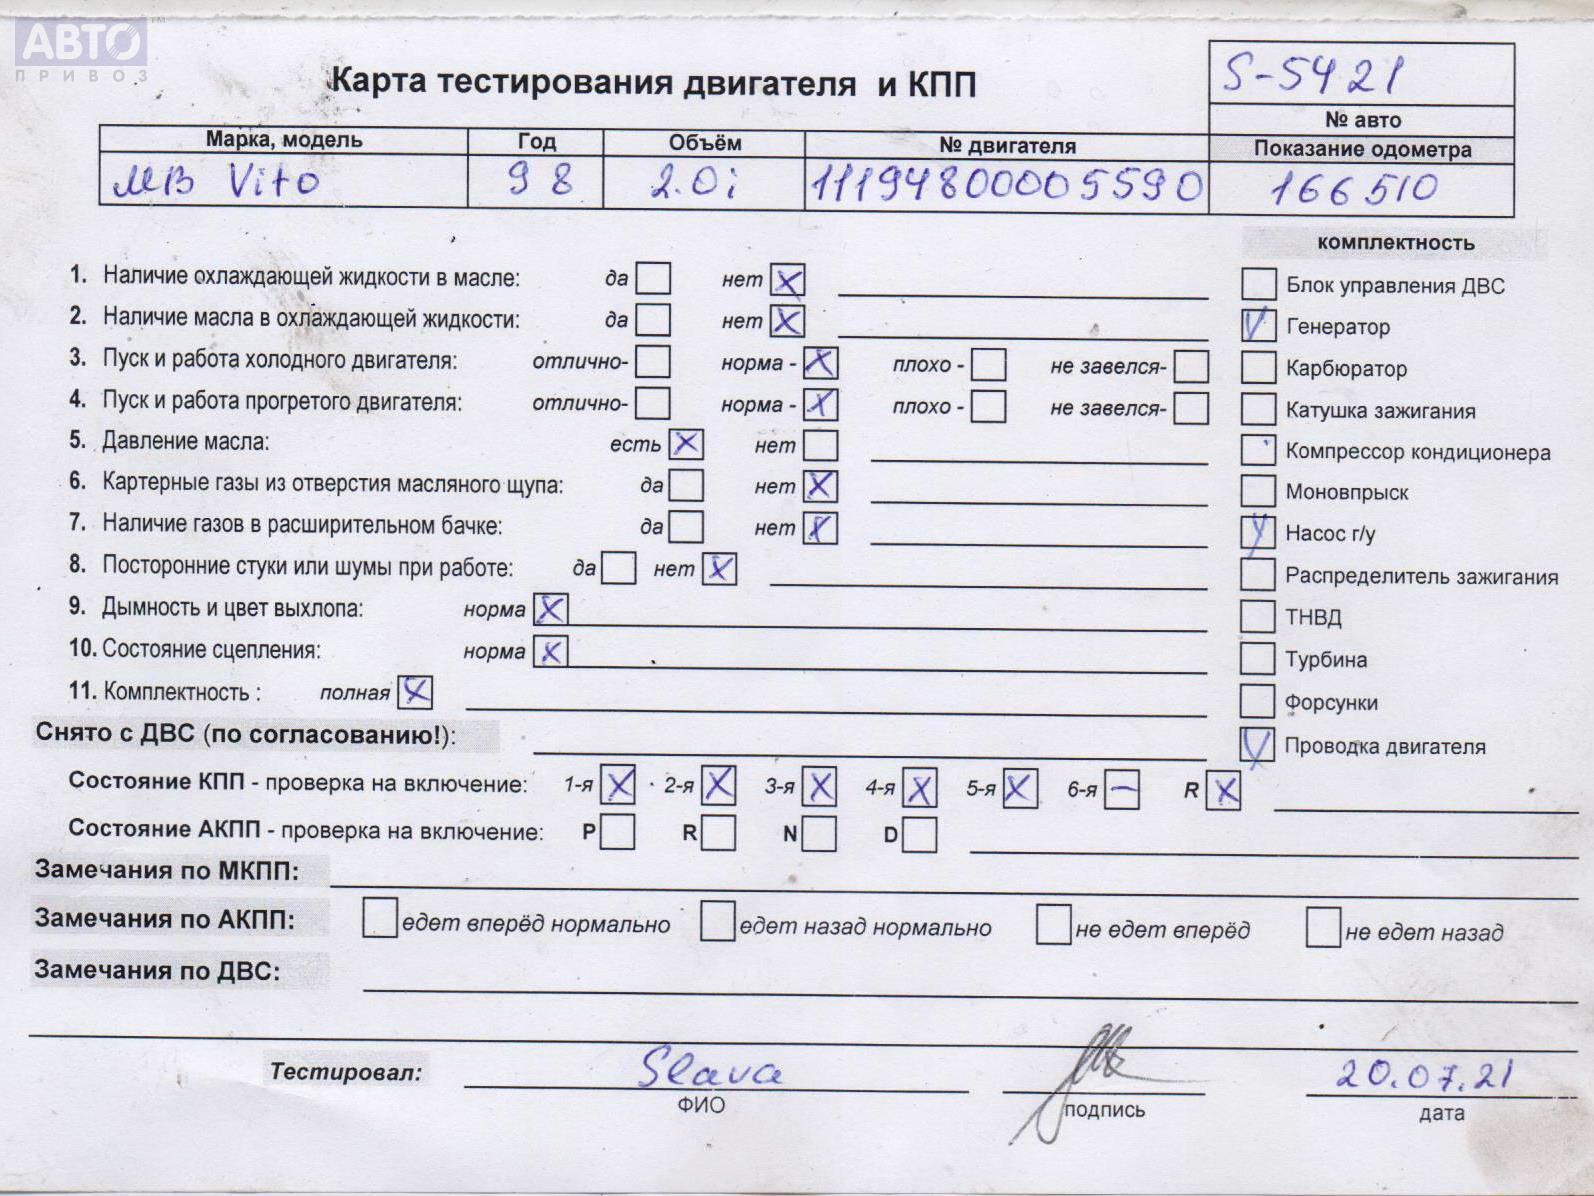 АВТО ™
ПРИВОЗ
Карта тестирования двигателя и КПП
S-5421
№ авто
Марка, модель Год Объём № двигателя Показание одометра
МВ Vito 98 2.0i 11194800005590 166510
комплектность
1. Наличие охлаждающей жидкости в масле: да нет X
Блок управления ДВС
2. Наличие масла в охлаждающей жидкости: да нет X
V Генератор
3. Пуск и работа холодного двигателя: отлично- норма - X плохо - не завелся-
Карбюратор
4. Пуск и работа прогретого двигателя: отлично- норма - X плохо - не завелся-
Катушка зажигания
5. Давление масла: есть X нет
Компрессор кондиционера
6. Картерные газы из отверстия масляного щупа: да нет X
Моновпрыск
7. Наличие газов в расширительном бачке: да нет X
V Насос г/у
8. Посторонние стуки или шумы при работе: да нет X
Распределитель зажигания
9. Дымность и цвет выхлопа: норма X
ТНВД
10. Состояние сцепления: норма X
Турбина
11. Комплектность : полная X
Форсунки
Снято с ДВС (по согласованию!):
V Проводка двигателя
Состояние КПП - проверка на включение: 1-я X 2-я X 3-я X 4-я X 5-я X 6-я — R X
Состояние АКПП - проверка на включение: P R N D
Замечания по МКПП:
Замечания по АКПП: едет вперёд нормально едет назад нормально не едет вперёд не едет назад
Замечания по ДВС:
Тестировал: Slava 20.07.21
ФИО подпись дата